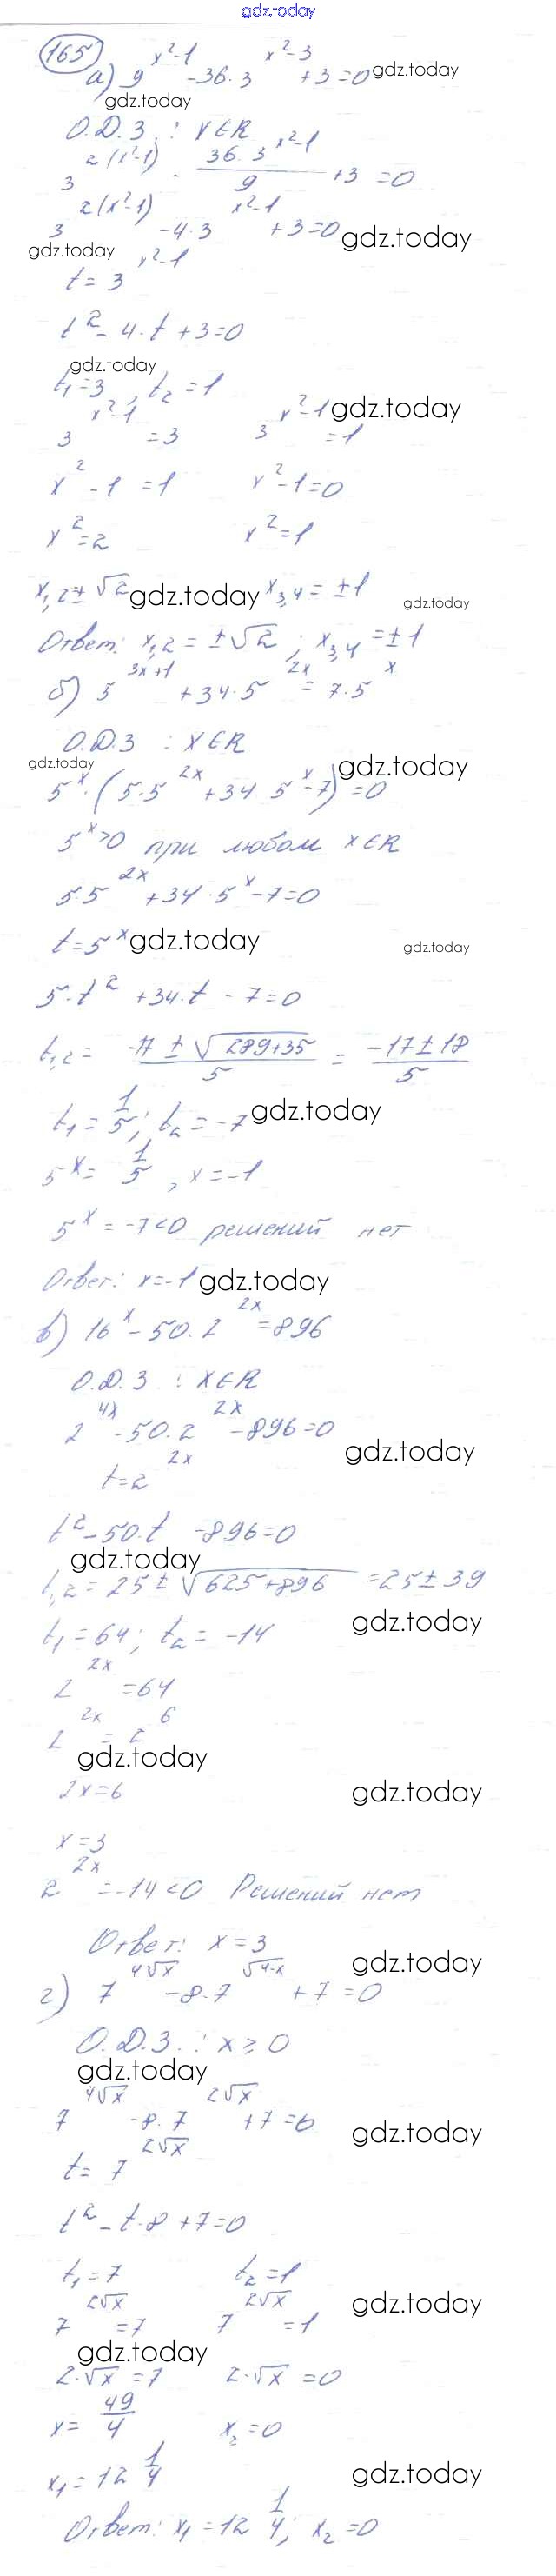 gdz.today
165
а) 9^(x²-1) - 36·3^(x²-3) + 3 = 0 gdz.today
gdz.today
О.Д.З. : X∈R
3^(2(x²-1)) - (36·3^(x²-1))/9 + 3 = 0
3^(2(x²-1)) - 4·3^(x²-1) + 3 = 0 gdz.today
gdz.today
t = 3^(x²-1)
t² - 4·t + 3 = 0
gdz.today
t₁ = 3, t₂ = 1
3^(x²-1) = 3 3^(x²-1) = 1 gdz.today
x² - 1 = 1 x² - 1 = 0
x² = 2 x² = 1
x₁,₂ ± √2 gdz.today x₃,₄ = ±1 gdz.today
Ответ: x₁,₂ = ±√2 ; x₃,₄ = ±1
б) 5^(3x+1) + 34·5^(2x) = 7·5^x
О.Д.З : X∈R
gdz.today gdz.today
5^x·(5·5^(2x) + 34 5^x - 7) = 0
5^x > 0 при любом X∈R
5·5^(2x) + 34·5^x - 7 = 0
t = 5^x gdz.today gdz.today
5·t² + 34·t - 7 = 0
t₁,₂ = (-17 ± √(289+35))/5 = (-17 ± 18)/5
t₁ = 1/5; t₂ = -7 gdz.today
5^x = 1/5, x = -1
5^x = -7 < 0 решений нет
Ответ: x = -1 gdz.today
в) 16^x - 50·2^(2x) = 896
О.Д.З : X∈R
2^(4x) - 50·2^(2x) - 896 = 0 gdz.today
t = 2^(2x)
t² - 50·t - 896 = 0
gdz.today
t₁,₂ = 25 ± √(625+896) = 25 ± 39
t₁ = 64; t₂ = -14 gdz.today
2^(2x) = 64
2^(2x) = 2^6
gdz.today
2x = 6 gdz.today
x = 3
2^(2x) = -14 < 0 Решений нет
Ответ: x = 3 gdz.today
г) 7^(4√x) - 8·7^(√(4·x)) + 7 = 0
О.Д.З. : x ≥ 0
gdz.today
7^(4√x) - 8·7^(2√x) + 7 = 0 gdz.today
t = 7^(2√x)
t² - t·8 + 7 = 0
t₁ = 7 t₂ = 1
7^(2√x) = 7 7^(2√x) = 1 gdz.today
gdz.today
2·√x = 7 2·√x = 0
x = 49/4 x₂ = 0
x₁ = 12 1/4 gdz.today
Ответ: x₁ = 12 1/4; x₂ = 0